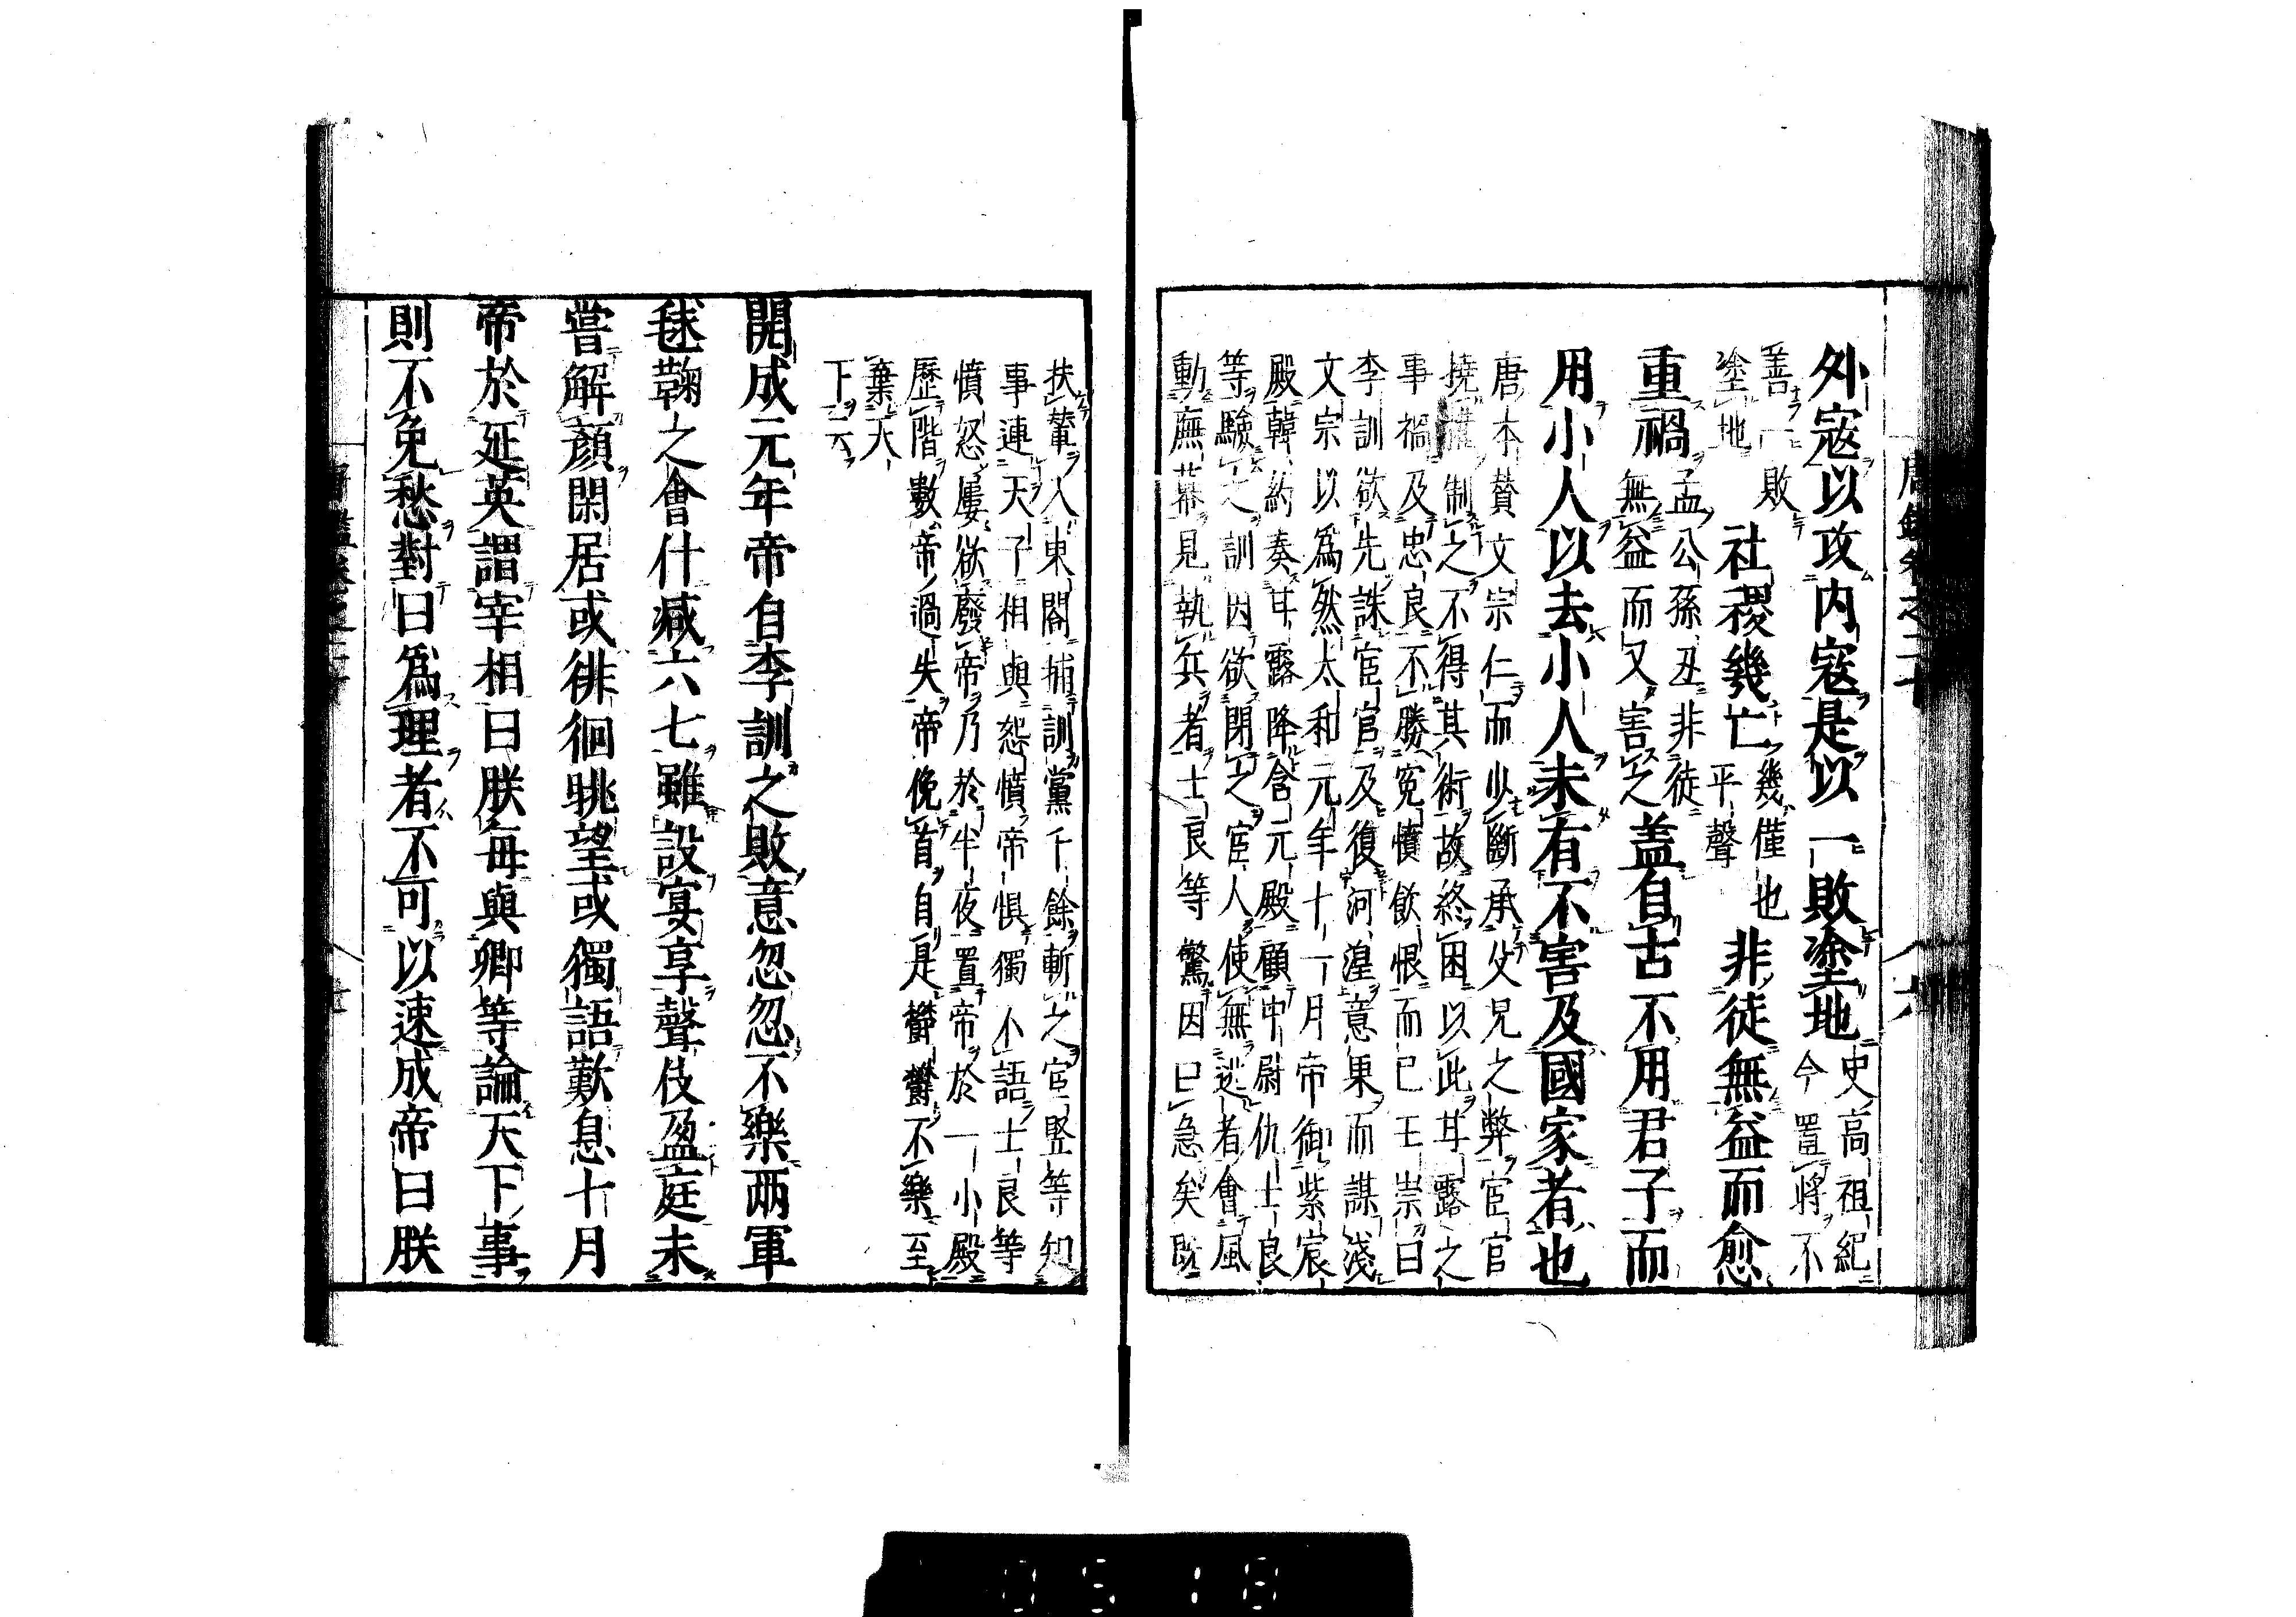 外寇以攻内寇是以一敗塗地史高祖紀今置將不
善一敗塗地社稷幾亡幾僅也平聲非徒無益而愈
重禍孟公孫丑非徒無益而又害之盖自古不用君子而
用小人以去小人未有不害及國家者也
唐本賛文宗仁而少斷承父兄之弊宦官
撓權制之不得其術故終困以此甘露之
事禍及忠良不勝寃憤飲恨而已王崇曰
李訓欲先誅宦官及復河湟意果而謀淺
文宗以爲然太和元年十一月帝御紫宸
殿韓約奏甘露降含元殿顧中尉仇士良
等驗之訓因欲閉之宦人使無逃者會風
動廡幕見執兵者士良等驚因曰急矣既
扶輦入東閤捕訓黨千餘斬之宦竪等知
事連天子相與怨憤帝惧獨不語士良等
憤怒屢欲廢帝乃於半夜置帝於一小殿
歷階數帝過失帝俛首自是鬱鬱不樂至
棄天
下云
開成元年帝自李訓之敗意忽忽不樂兩軍
毬鞠之會什減六七雖設宴享聲伎盈庭未
嘗解顔閑居或徘徊眺望或獨語歎息十月
帝於延英謂宰相曰朕每與卿等論天下事
則不免愁對曰爲理者不可以速成帝曰朕